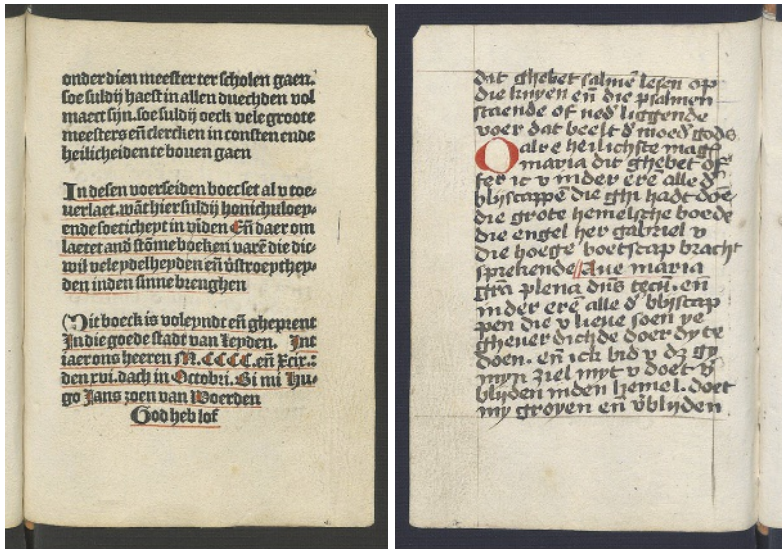 onder dien meester ter scholen gaen.
soe suldij haest in allen duechden vol
maect sijn. soe suldij oeck vele groote
meesters eñ clercken in consten ende
heilicheiden te bouen gaen
In desen voerseiden boec set al v toe-
uerlaet. wāt hier suldij honich vloey-
ende soeticheyt in viden Eñ daer om
laetet and stōme boeken varē die dic-
wil vele ydelheyden eñ v̄stroeythey-
den in den sinne brenghen
Dit boeck is voleyndt eñ gheprent
In die goede stadt van Leyden. Int
iaer ons heeren M. CCCC. eñ xcix.:
den xvi. dach in Octobri. Bi mi Hu-
go Jans zoen van Woerden
God heb lof
dat ghebet salmē lesen op
die knyen eñ die psalmen
staende of ned̕ liggende
voer dat beelt d̕ moed̕ gods
O alre heilichste magḥ
maria dit ghebet of
fer ic v in der erē alle d̕
blijscappē die ghi hadt doē
die grote hemelsche boede
die engel her gabriel v
die hoege boetscap bracht
sprekende Aue maria
gr̄a plena dn̄s tecū. eñ
in der erē alle d̕ blijscap
pen die v lieue soen ye
gheuerdichde doer dy te
doen. eñ ick bid v dz gy
myn ziel myt v doet v̄
blijden in den hemel. doet
my groyen eñ v̄blijden